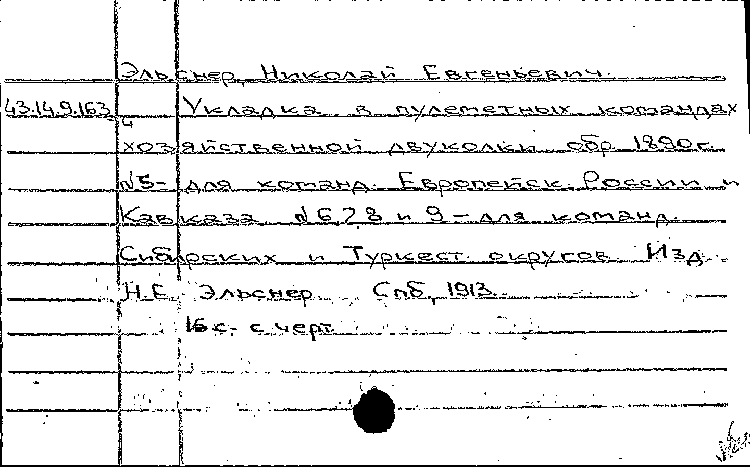 Эльснер, Николай Евгеньевич.
43.14.9.163 Укладка в пулеметных командах
4
хозяйственной двуколки обр 1890 г.
№5- для команд. Европейск. России и
Кавказа №6,7,8 и 9 - для команд.
Сибирских и Туркест. округов. Изд.
Н.Е. Эльснер. Спб, 1913.
16 с. с черт.